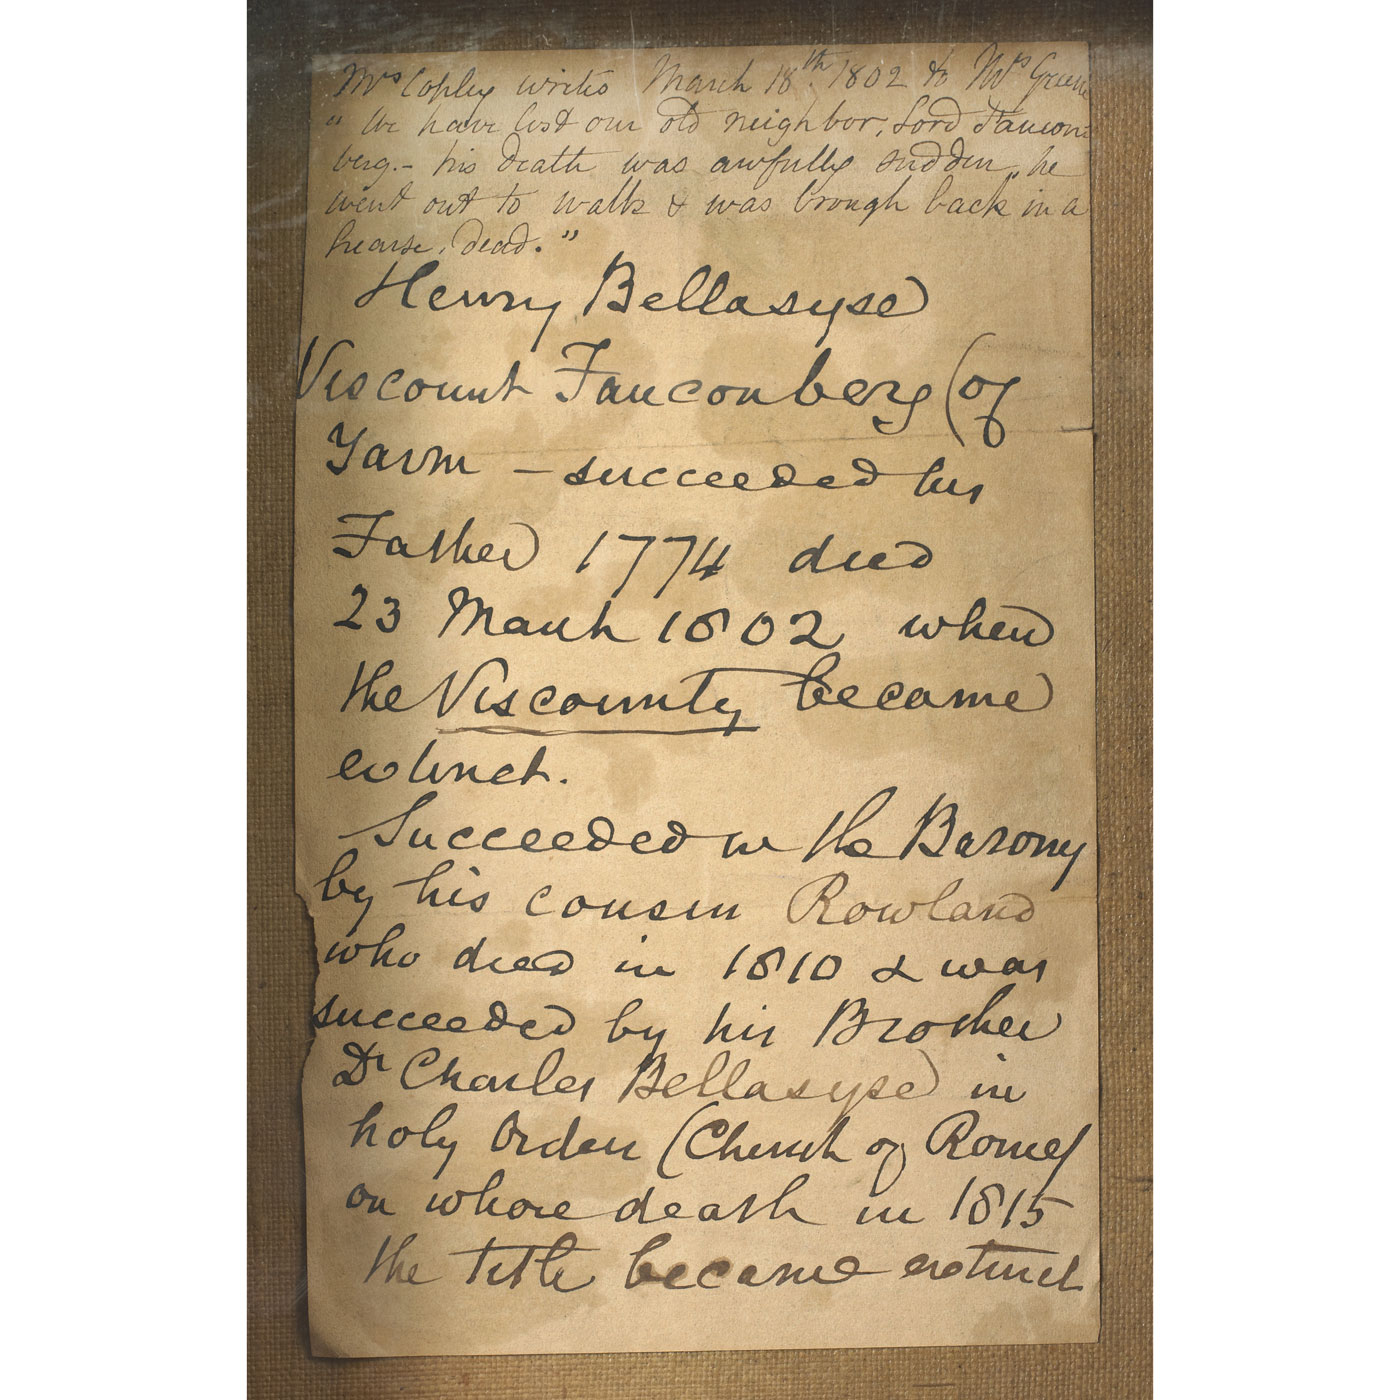 Mrs Copley writes March 18th. 1802 to Mrs Greene
"We have lost our old neighbor, Lord Faucon
berg. - his death was awfully sudden, "he
went out to walk & was brough back in a
hearse, dead."
Henry Bellasyse
Viscount Fauconberg (of
Yarm - succeeded his
Father 1774 died
23 March 1802 when
the Viscounty became
extinct.
Succeeded in the Barony
by his cousin Rowland
who died in 1810 & was
succeeded by his Brother
Dr Charles Bellasyse in
holy Orders (Church of Rome)
on whose death in 1815
the title became extinct